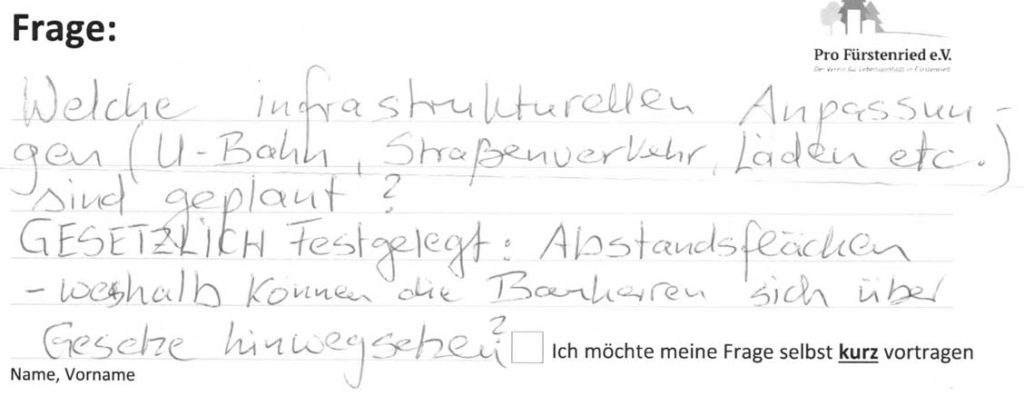 Frage:
Pro Fürstenried e.V.
Welche infrastrukturellen Anpassun-
gen (U-Bahn, Straßenverkehr, Läden etc.)
sind geplant?
GESETZLICH Festgelegt: Abstandsflächen
- weshalb können die Bauherren sich über
Gesetze hinwegsetzen?
Ich möchte meine Frage selbst kurz vortragen
Name, Vorname